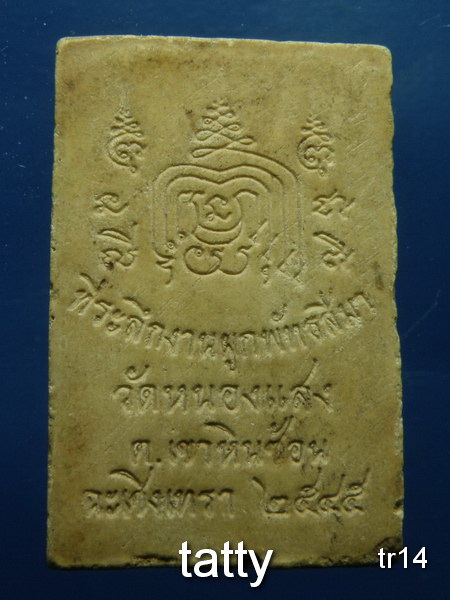 ที่ระลึกงานผูกพัทธสีมา
วัดหนองแสง
ต.เขาหินซ้อน
ฉะเชิงเทรา ๒๕๔๕
tatty
tr14